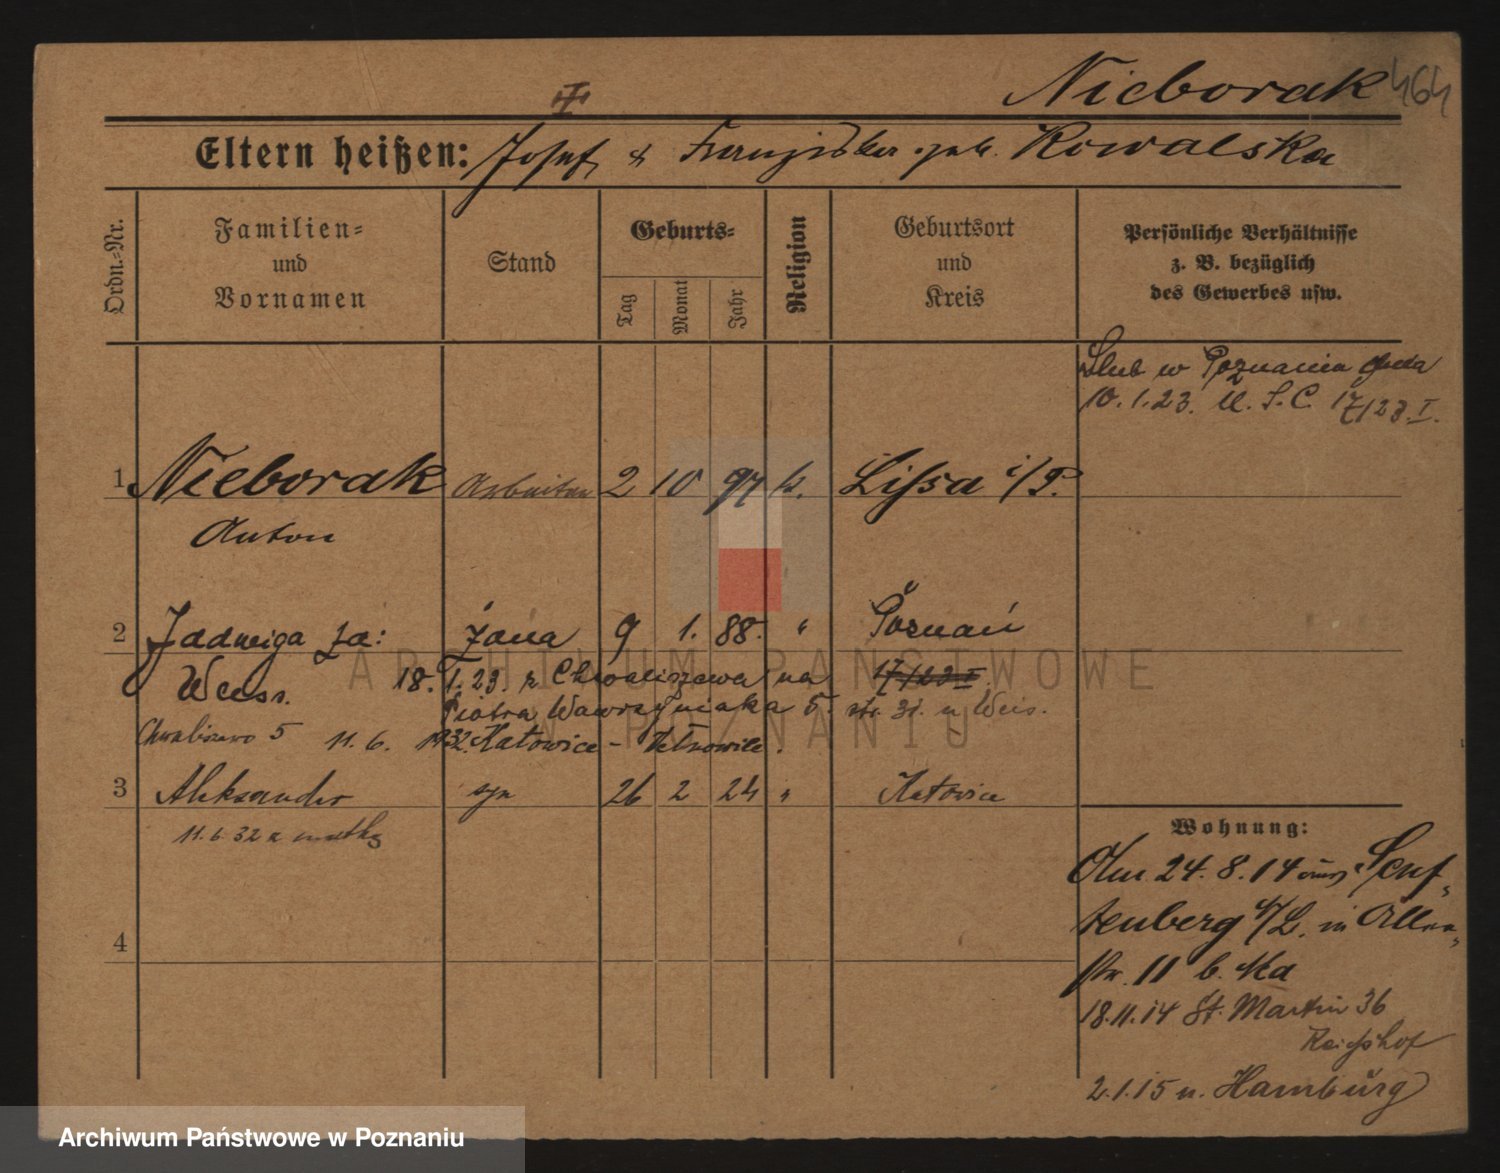 Nieborak 464
Eltern heißen: Josef & Franziska geb. Kowalska
Ordn.-Nr.
Familien-
und
Vornamen
Stand
Geburts-
Tag
Monat
Jahr
Religion
Geburtsort
und
Kreis
Persönliche Verhältnisse
z. B. bezüglich
des Gewerbes usw.
Ślub w Poznaniu
10.1.23. U.S.C. 17/23.I.
1 Nieborak Arbeiter 2 10 97 k. Lissa i/P.
Anton
2 Jadwiga żona 9 1. 88. " Poznań
Weiss. 18.1.23. z Chwaliszewa na 17/23 I
Piotra Wawrzyniaka 5. str. 31. u Weis.
Chwaliszewo 5 11.6. 1932. Katowice -
3 Aleksander syn 26 2 24 " Katowice
11.6 32 z matką
4
Wohnung:
Am 24.8.14 aus Senf-
tenberg N/L. in
str. 11 b.
18.11.14 St. Martin 36
Reichshof
2.1.15 n. Hamburg
ARCHIWUM PAŃSTWOWE
W POZNANIU
Archiwum Państwowe w Poznaniu